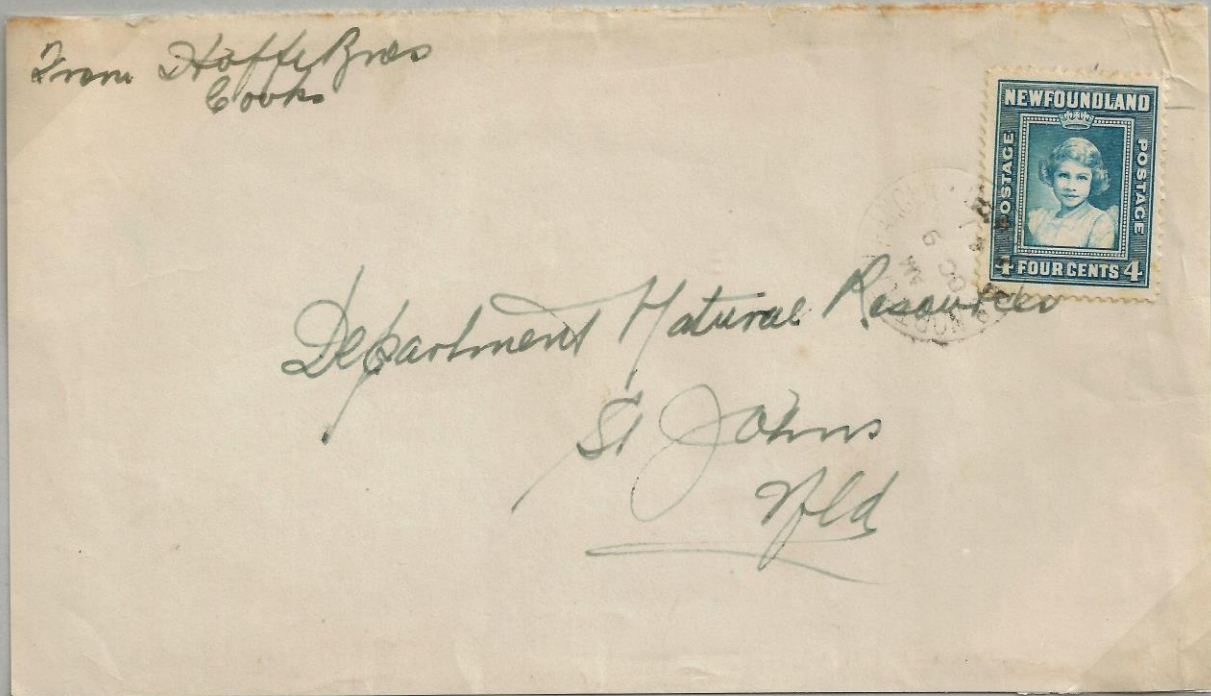 From Hoffe Bros
Cooks
NEWFOUNDLAND
POSTAGE
POSTAGE
4 FOUR CENTS 4
Department Natural Resources
St Johns
Nfld